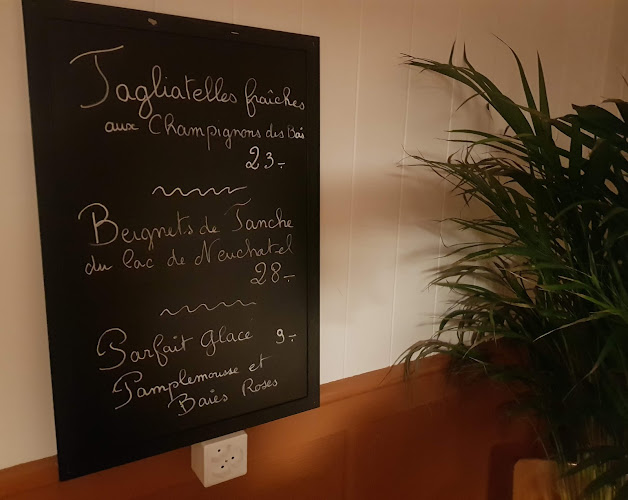 Tagliatelles fraîches
aux Champignons des Bois
23.-
Beignets de Tanche
du lac de Neuchatel
28.-
Parfait Glacé 9.-
Pamplemousse et
Baies Roses